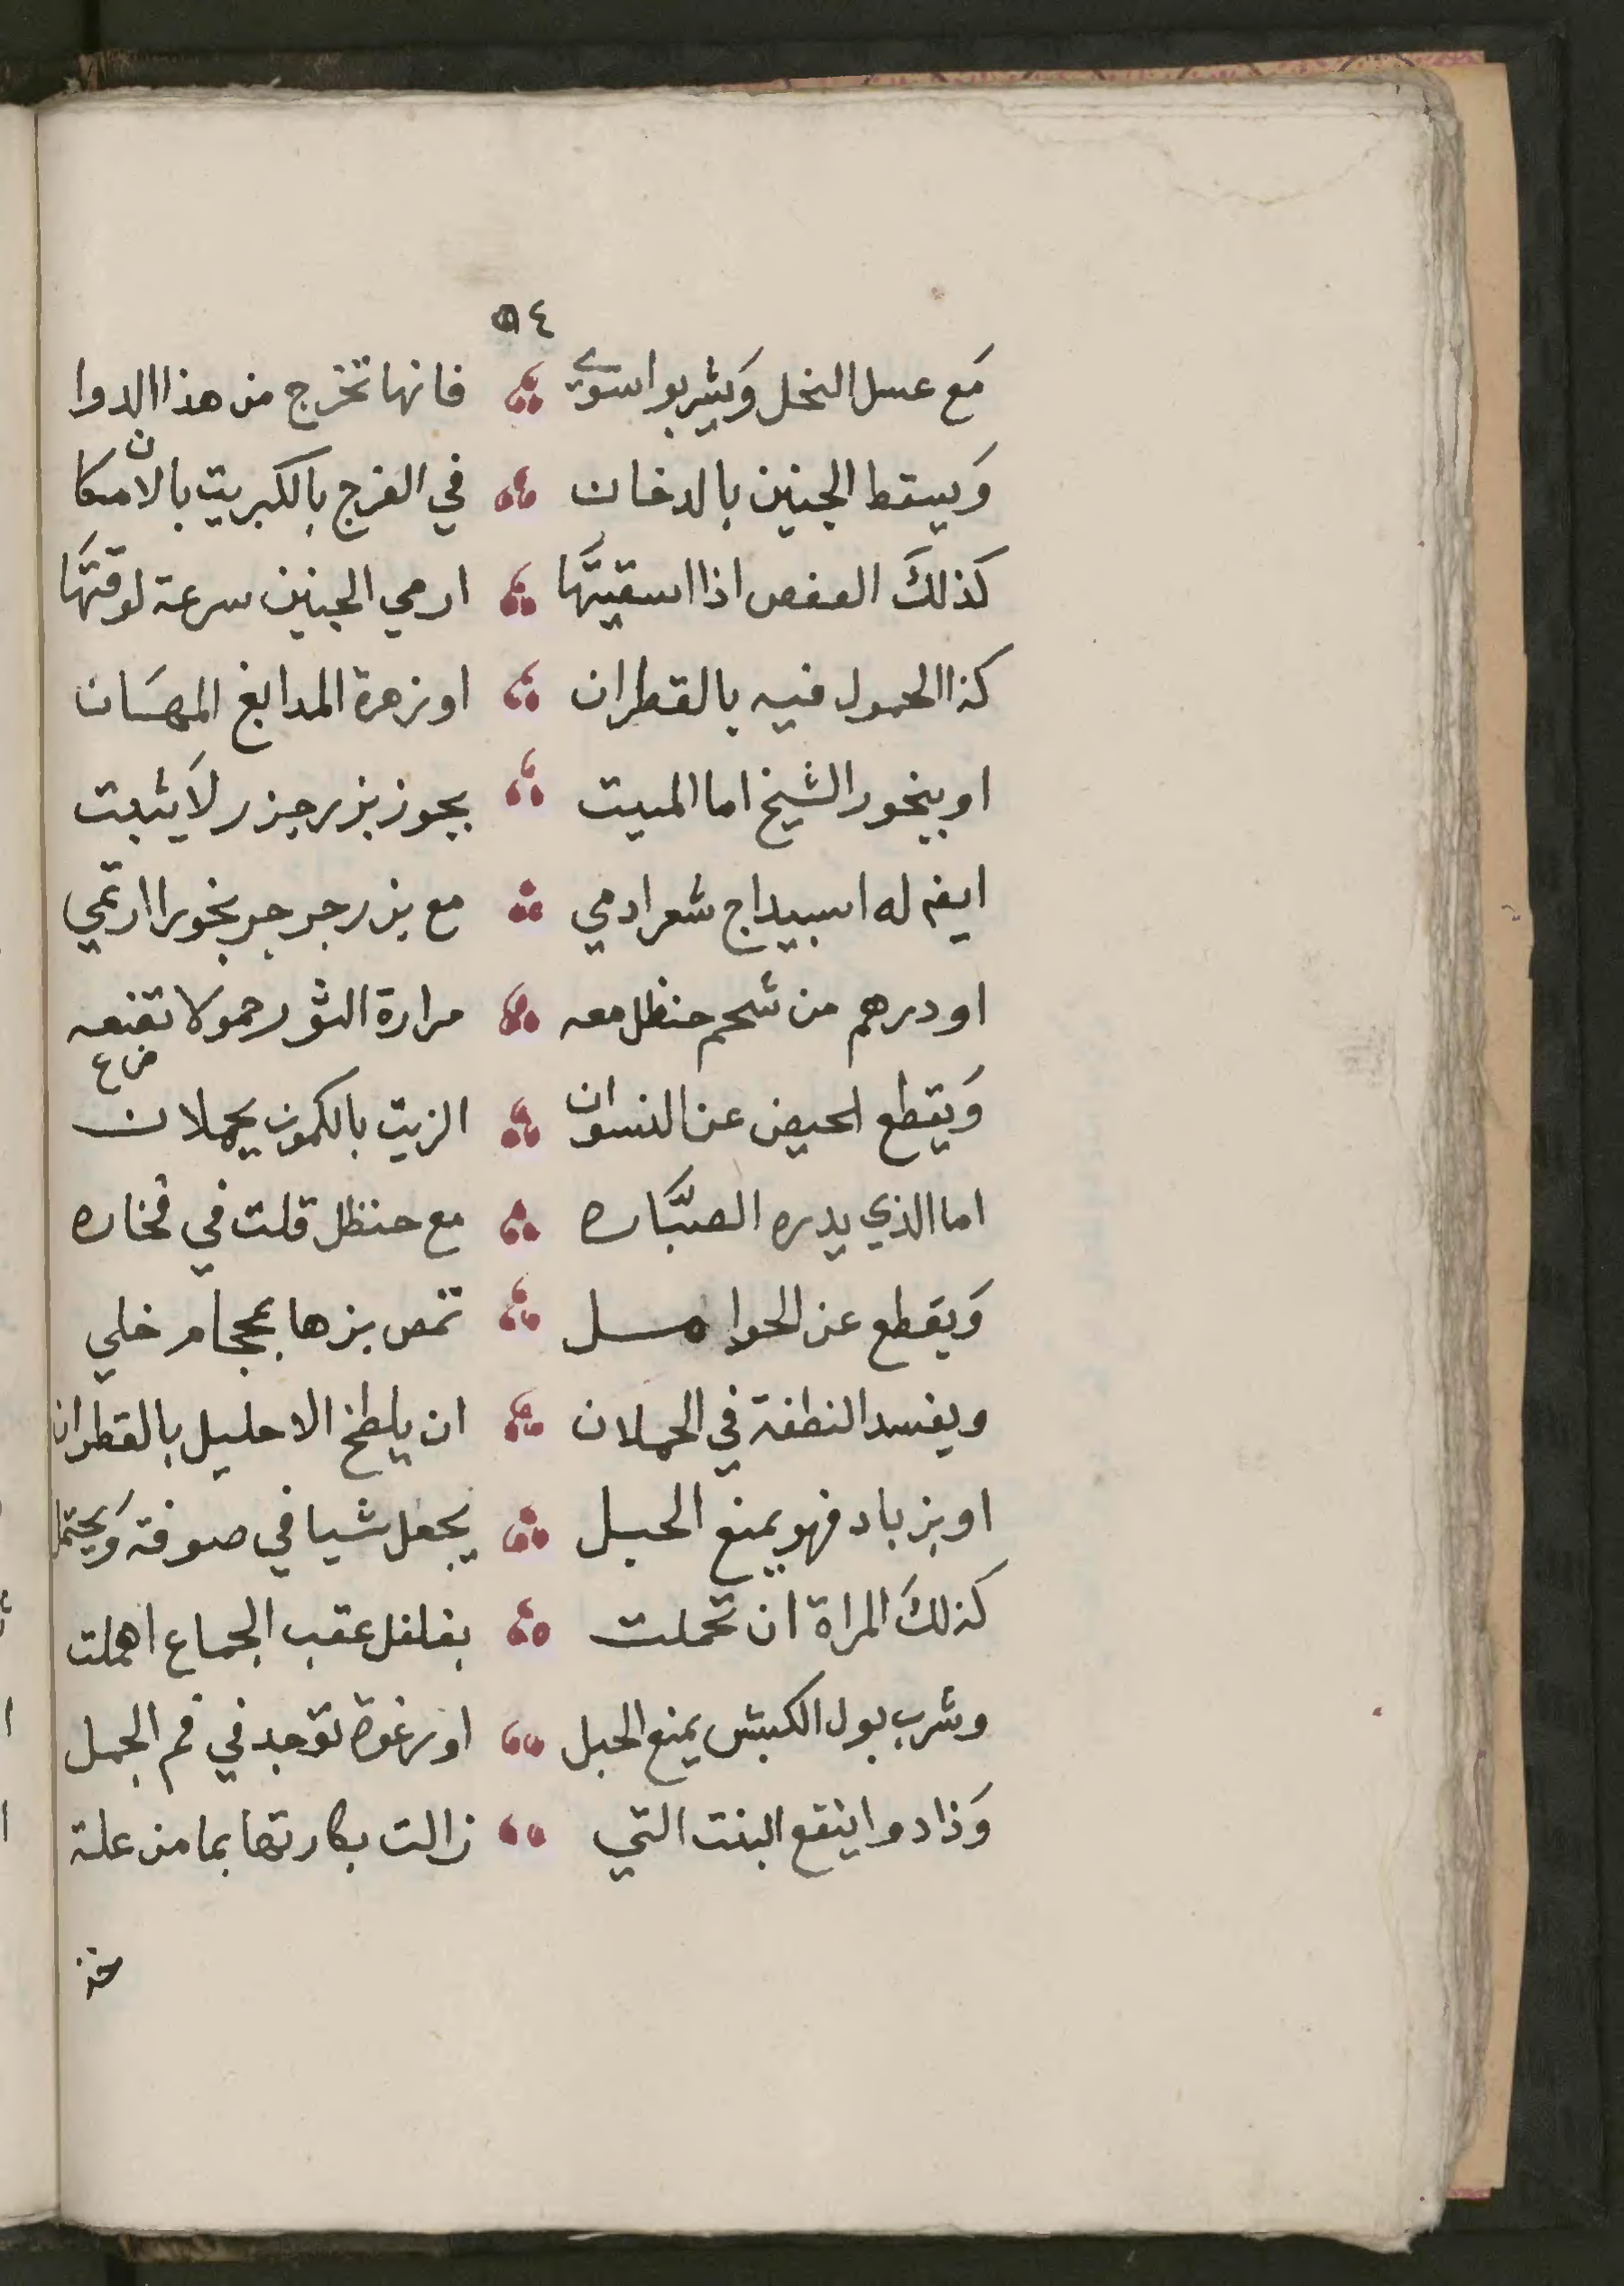 ٥٤
مَع عسل النحل وَيشربوا سوى فانها تخرج من هذا الدوا
وَيسقط الجنين بالدخان في الفرج بالكبريت بالامكان
كذلكَ العفص اذا اسقيتَها ارمي الجنين سرعة لوقتَها
كذا الحمول فيه بالقطران او زهرة المدابغ المهسَان
او بيخور الشيخ اما الميت بجوز بزر جزر لاَ يثبت
ايضه له اسبيداج شعر ادمي مع بزر جر جر بخورا ارتمي
او درهم من شحم حنظل معه مرارة الثور حمولا تقنعه
وَيقطع الحيض عن النسوان الزيت بالكمون يحملان
اما الذي يدره الصبَّاره مع حنظل قلت في فخاره
وَيقطع عن الحوامل تمص بزها بمحجام خلي
ويفسد النطفة في الحملان ان يلطخ الاحليل بالقطران
او بزباد فهو يمنع الحبل يجعل شيا في صوفة وَيحتمل
كذلكَ المراة ان تحملت بفلفل عقب الجماع اهملت
وشرب بول الكبش يمنع الحبل او رغوة توجد في فم الجمل
وَذا دوا ينفع البنت التي زالت بكارتها بما من علة